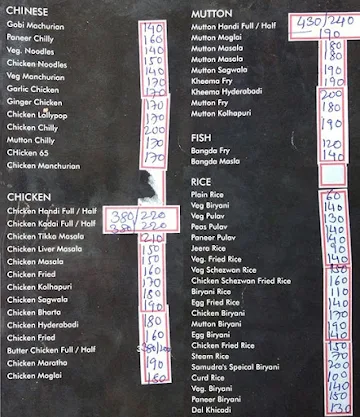 CHINESE
Gobi Machurian 140
Paneer Chilly 160
Veg. Noodles 140
Chicken Noodles 150
Veg Manchurian 140
Garlic Chicken 170
Ginger Chicken 170
Chicken Lollypop 170
Chicken Chilly 200
Mutton Chilly 170
CHicken 65 170
Chicken Manchurian
CHICKEN
Chicken Handi Full / Half 380/220
Chicken Kadai Full / Half 380/220
Chicken Tikka Masala 210
Chicken Liver Masala 150
Chicken Masala 150
Chicken Fried 160
Chicken Kolhapuri 170
Chicken Sagwala 180
Chicken Bharta 190
Chicken Hyderabadi 180
Chicken Fried 160
Butter Chicken Full / Half
Chicken Maratha 190
Chicken Moglai 180
MUTTON
Mutton Handi Full / Half 430/240
Mutton Moglai 190
Mutton Masala 180
Mutton Masala 180
Mutton Sagwala 190
Kheema Fry 190
Kheema Hyderabadi 200
Mutton Fry 180
Mutton Kolhapuri 190
FISH
Bangda Fry 120
Bangda Masla 140
RICE
Plain Rice 60
Veg Biryani 140
Veg Pulav 130
Peas Pulav 140
Paneer Pulav 140
Jeera Rice 90
Veg. Fried Rice 140
Veg Schezwan Rice 150
Chicken Schezwan Fried Rice 160
Biryani Rice 110
Egg Fried Rice 140
Chicken Biryani 160
Mutton Biryani 190
Egg Biryani 140
Chicken Fried Rice 150
Steam Rice 70
Samudra's Speical Biryani 200
Curd Rice 100
Veg. Biryani 140
Paneer Biryani 150
Dal Khicadi 130